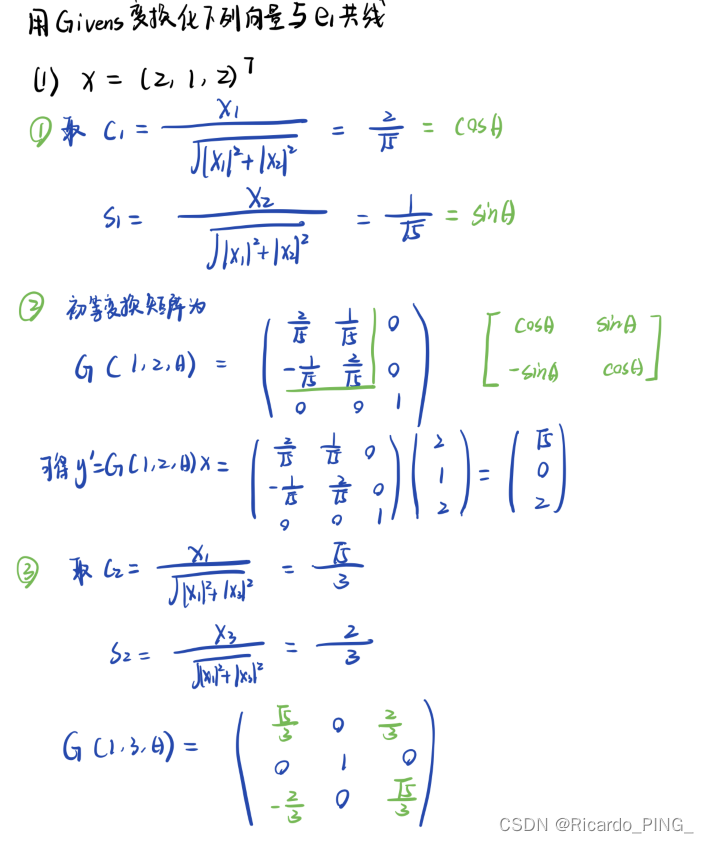 用Givens变换化下列向量与e₁共线
(1) x = (2, 1, 2)ᵀ
① 取 C₁ = X₁ / √(|X₁|²+|X₂|²) = 2/√5 = cosθ
S₁ = X₂ / √(|X₁|²+|X₂|²) = 1/√5 = sinθ
② 初等变换矩阵为
G(1,2,θ) = ( 2/√5 1/√5 0 ; -1/√5 2/√5 0 ; 0 0 1 ) [ cosθ sinθ ; -sinθ cosθ ]
可得 y'=G(1,2,θ)x = ( 2/√5 1/√5 0 ; -1/√5 2/√5 0 ; 0 0 1 ) ( 2 ; 1 ; 2 ) = ( √5 ; 0 ; 2 )
③ 取 C₂ = X₁ / √(|X₁|²+|X₃|²) = √5/3
S₂ = X₃ / √(|X₁|²+|X₃|²) = 2/3
G(1,3,θ) = ( √5/3 0 2/3 ; 0 1 0 ; -2/3 0 √5/3 )
CSDN @Ricardo_PING_